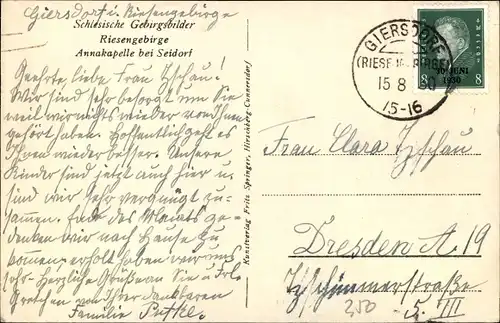 Giersdorf i. Riesengebirge
Schlesische Gebirgsbilder
Riesengebirge
Annakapelle bei Seidorf
Geehrte, liebe Frau Tzschau!
Wir sind sehr besorgt um Sie
weil wir nichts wieder von Ihnen
gehört haben. Hoffentlich geht es
Ihnen wieder besser. Unsere
Kinder sind jetzt auch hier u.
sind wir sehr vergnügt zu-
sammen. Ende des Monats ge-
denken wir nach Hause zu
kommen. erholt haben wir uns
sehr. Herzliche Grüße an Sie u. Frl.
Gretchen von Ihrer dankbaren
Familie
Kunstverlag Fritz Springer, Hirschberg-Cunnersdorf
GIERSDORF
(RIESENGEBIRGE)
15 8 30
15-16
8 8
30. JUNI
1930
Frau Clara Tzschau
Dresden A 19
Tzschimmerstraße
5 III
250